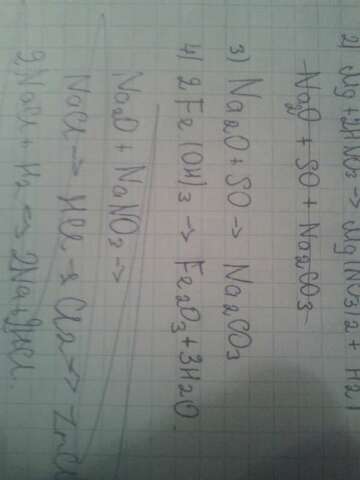 2) Mg + 2HNO3 → Mg(NO3)2 + H2↑
Na2O + SO + Na2CO3
3) Na2O + SO → Na2CO3
4) 2Fe(OH)3 → Fe2O3 + 3H2O
Na2O + NaNO3 →
NaCl → HCl → Cl2 → ZnCl
2NaCl + H2 → 2Na + 2HCl.